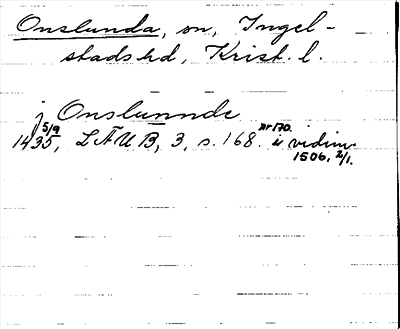 Onslunda, sn, Ingel-
stads hd, Krist. l.
j Onslunnde
1435 5/9, LÄUB, 3, s. 168. nr 170. i vidim.
1506, 2/1.